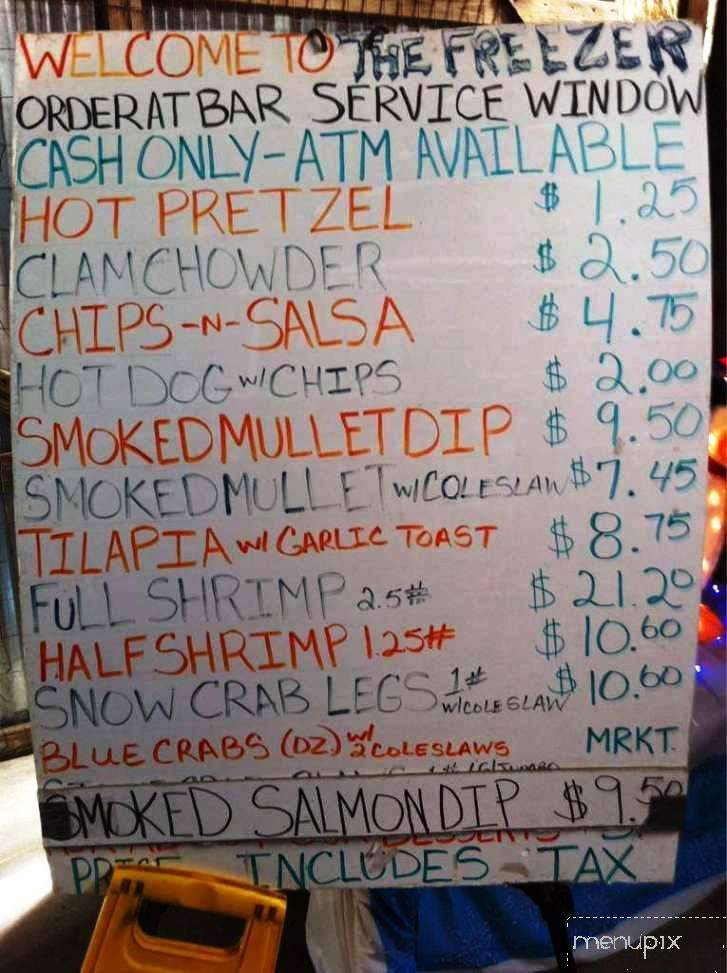 WELCOME TO THE FREEZER
ORDER AT BAR SERVICE WINDOW
CASH ONLY - ATM AVAILABLE
HOT PRETZEL $ 1.25
CLAM CHOWDER $ 2.50
CHIPS -N- SALSA $ 4.75
HOT DOG W/ CHIPS $ 2.00
SMOKED MULLET DIP $ 9.50
SMOKED MULLET W/ COLESLAW $ 7.45
TILAPIA W/ GARLIC TOAST $ 8.75
FULL SHRIMP 2.5# $ 21.20
HALF SHRIMP 1.25# $ 10.60
SNOW CRAB LEGS 1# W/ COLESLAW $ 10.60
BLUE CRABS (DZ) W/ 2 COLESLAWS MRKT.
SMOKED SALMON DIP $ 9.50
DESSERTS
PRICE INCLUDES TAX
menupix